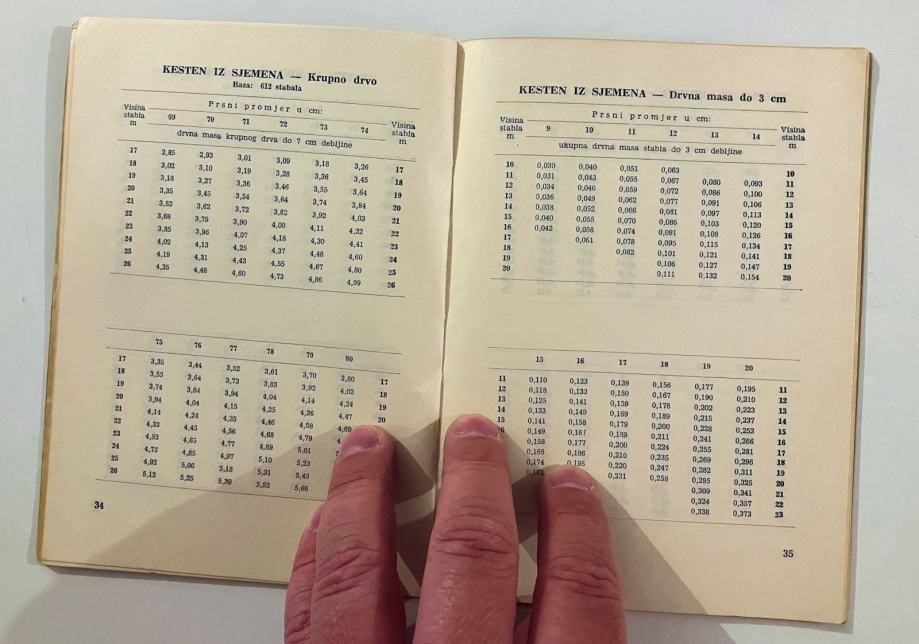 KESTEN IZ SJEMENA — Krupno drvo
Baza: 612 stabala
Visina stabla m Prsni promjer u cm: Visina stabla m
69 70 71 72 73 74
drvna masa krupnog drva do 7 cm debljine
17 2,85 2,93 3,01 3,09 3,18 3,26 17
18 3,02 3,10 3,19 3,28 3,36 3,45 18
19 3,18 3,27 3,36 3,46 3,55 3,64 19
20 3,35 3,45 3,54 3,64 3,74 3,84 20
21 3,52 3,62 3,72 3,82 3,92 4,03 21
22 3,68 3,79 3,90 4,00 4,11 4,22 22
23 3,85 3,96 4,07 4,18 4,30 4,41 23
24 4,02 4,13 4,25 4,37 4,48 4,60 24
25 4,19 4,31 4,43 4,55 4,67 4,80 25
26 4,35 4,48 4,60 4,73 4,86 4,99 26
75 76 77 78 79 80
17 3,35 3,44 3,52 3,61 3,70 3,80 17
18 3,55 3,64 3,73 3,83 3,92 4,02 18
19 3,74 3,84 3,94 4,04 4,14 4,24 19
20 3,94 4,04 4,15 4,25 4,36 4,47 20
21 4,14 4,24 4,35 4,46 4,58 4,69
22 4,33 4,45 4,56 4,68 4,79
23 4,53 4,65 4,77 4,89 5,01
24 4,73 4,85 4,97 5,10 5,23
25 4,92 5,06 5,18 5,31 5,45
26 5,12 5,25 5,39 5,52 5,66
34
KESTEN IZ SJEMENA — Drvna masa do 3 cm
Visina stabla m Prsni promjer u cm: Visina stabla m
9 10 11 12 13 14
ukupna drvna masa stabla do 3 cm debljine
10 0,030 0,040 0,051 0,063 10
11 0,031 0,043 0,055 0,067 0,080 0,093 11
12 0,034 0,046 0,059 0,072 0,086 0,100 12
13 0,036 0,049 0,062 0,077 0,091 0,106 13
14 0,038 0,052 0,066 0,081 0,097 0,113 14
15 0,040 0,055 0,070 0,086 0,103 0,120 15
16 0,042 0,058 0,074 0,091 0,108 0,126 16
17 0,061 0,078 0,095 0,115 0,134 17
18 0,082 0,101 0,121 0,141 18
19 0,106 0,127 0,147 19
20 0,111 0,132 0,154 20
15 16 17 18 19 20
11 0,110 0,123 0,139 0,156 0,177 0,195 11
12 0,118 0,132 0,150 0,167 0,190 0,210 12
13 0,125 0,141 0,159 0,178 0,202 0,223 13
14 0,133 0,149 0,169 0,189 0,215 0,237 14
15 0,141 0,158 0,179 0,200 0,228 0,252 15
0,149 0,167 0,189 0,211 0,241 0,266 16
0,158 0,177 0,200 0,224 0,255 0,281 17
0,166 0,186 0,210 0,235 0,269 0,296 18
0,174 0,195 0,220 0,247 0,282 0,311 19
0,231 0,258 0,295 0,325 20
0,309 0,341 21
0,324 0,357 22
0,338 0,373 23
35